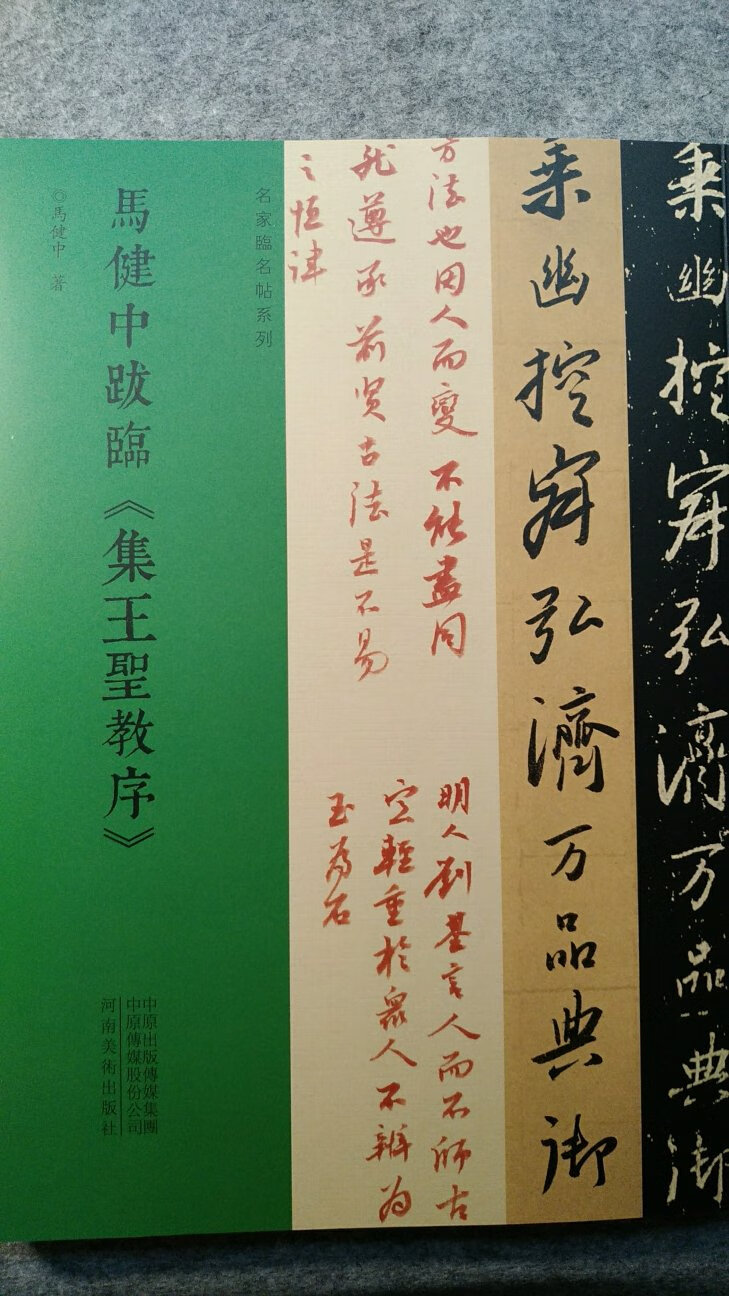 乘幽控寂弘濟万品典御
乘幽控寂弘濟万品典御
方法也因人而變不能盡同
然遵承前贤古法是不易
之恒律
明人劉基言人而不師古
定輕重於眾人不辨為
玉為石
名家臨名帖系列
馬健中跋臨《集王聖教序》
◎馬健中 著
中原出版傳媒集團
中原傳媒股份公司
河南美術出版社